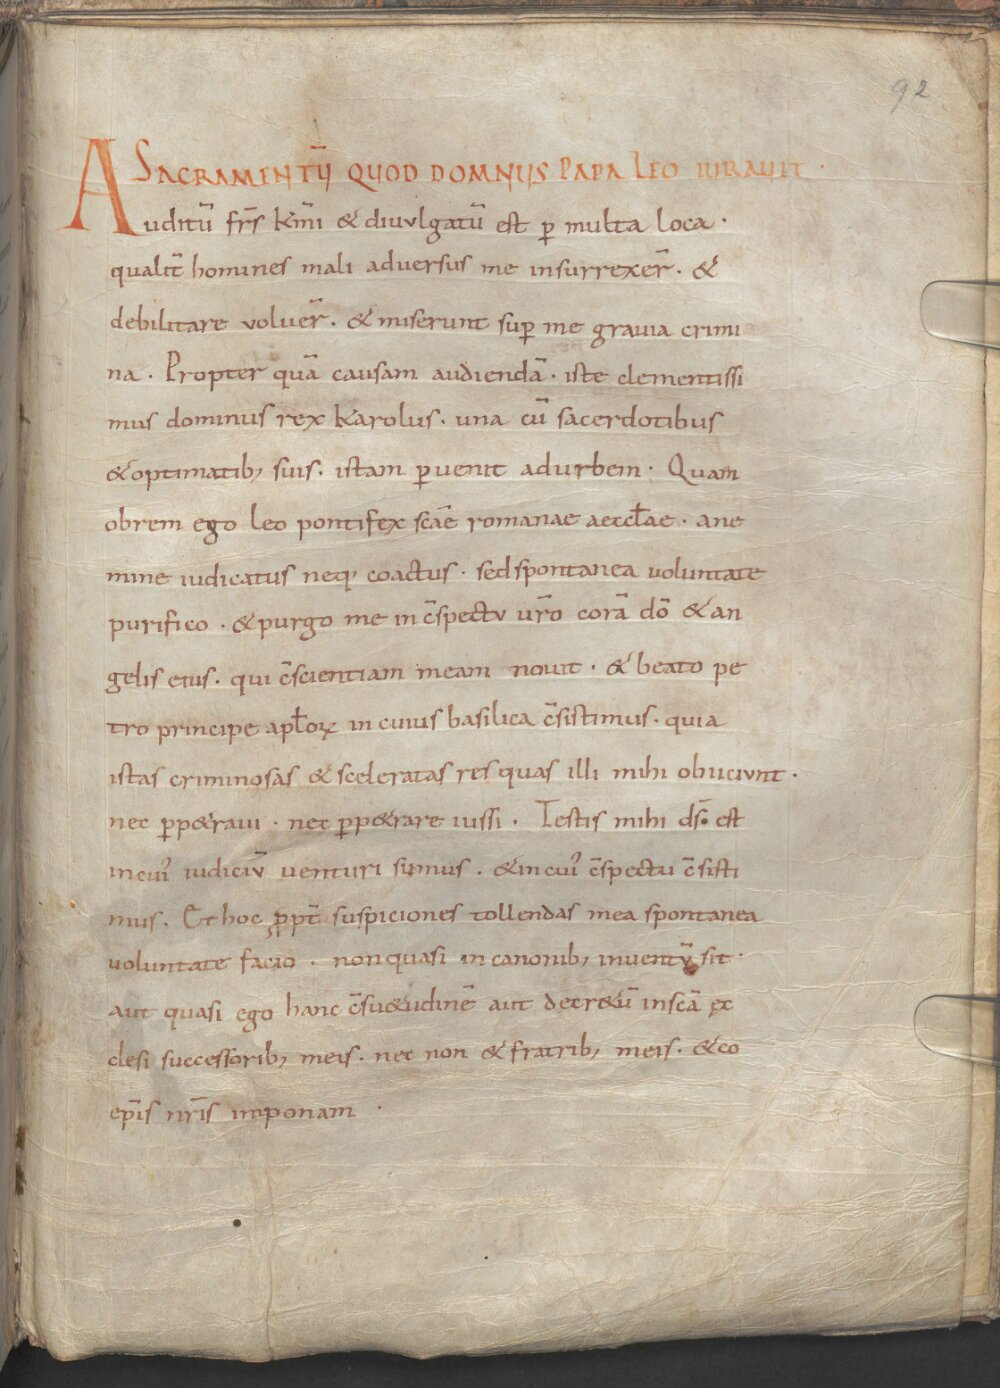 92
SACRAMENTU̅ QUOD DOMNUS PAPA LEO IURAUIT ·
Auditū fr̄s km̄i & diuulgatū est ꝑ multa loca ·
qualit̄ homines mali aduersus me insurrexer̄ · &
debilitare uoluer̄ · & miserunt suꝑ me grauia crimi
na · Propter quā causam audiendā · iste clementissi
mus dominus rex karolus · una cū sacerdotibus
& optimatib; suis · istam ꝑuenit ad urbem · Quam
obrem ego leo pontifex scāe romanae aeccƚae · a ne
mine iudicatus neq; coactus · sed spontanea uoluntate
purifico · & purgo me in c̄spectu ur̄o corā dō & an
gelis eius · qui c̄scientiam meam nouit · & beato pe
tro principe apƚoꝝ in cuius basilica c̄sistimus · quia
istas criminosas & sceleratas res quas illi mihi obiciunt ·
nec ꝑp&raui · nec ꝑp&rare iussi · Testis mihi ds̄ · est
in cui᾽ iudiciū uenturi sumus · & in cui᾽ c̄spectu c̄sisti
mus · Et hoc ꝓpt̄ suspiciones tollendas mea spontanea
uoluntate facio · non quasi in canonib; inuentū sit ·
aut quasi ego hanc c̄su&udinē aut decr&ū in scā ec
clesi successorib; meis · nec non & fratrib; meis · & co
ep̄is nr̄is imponam ·